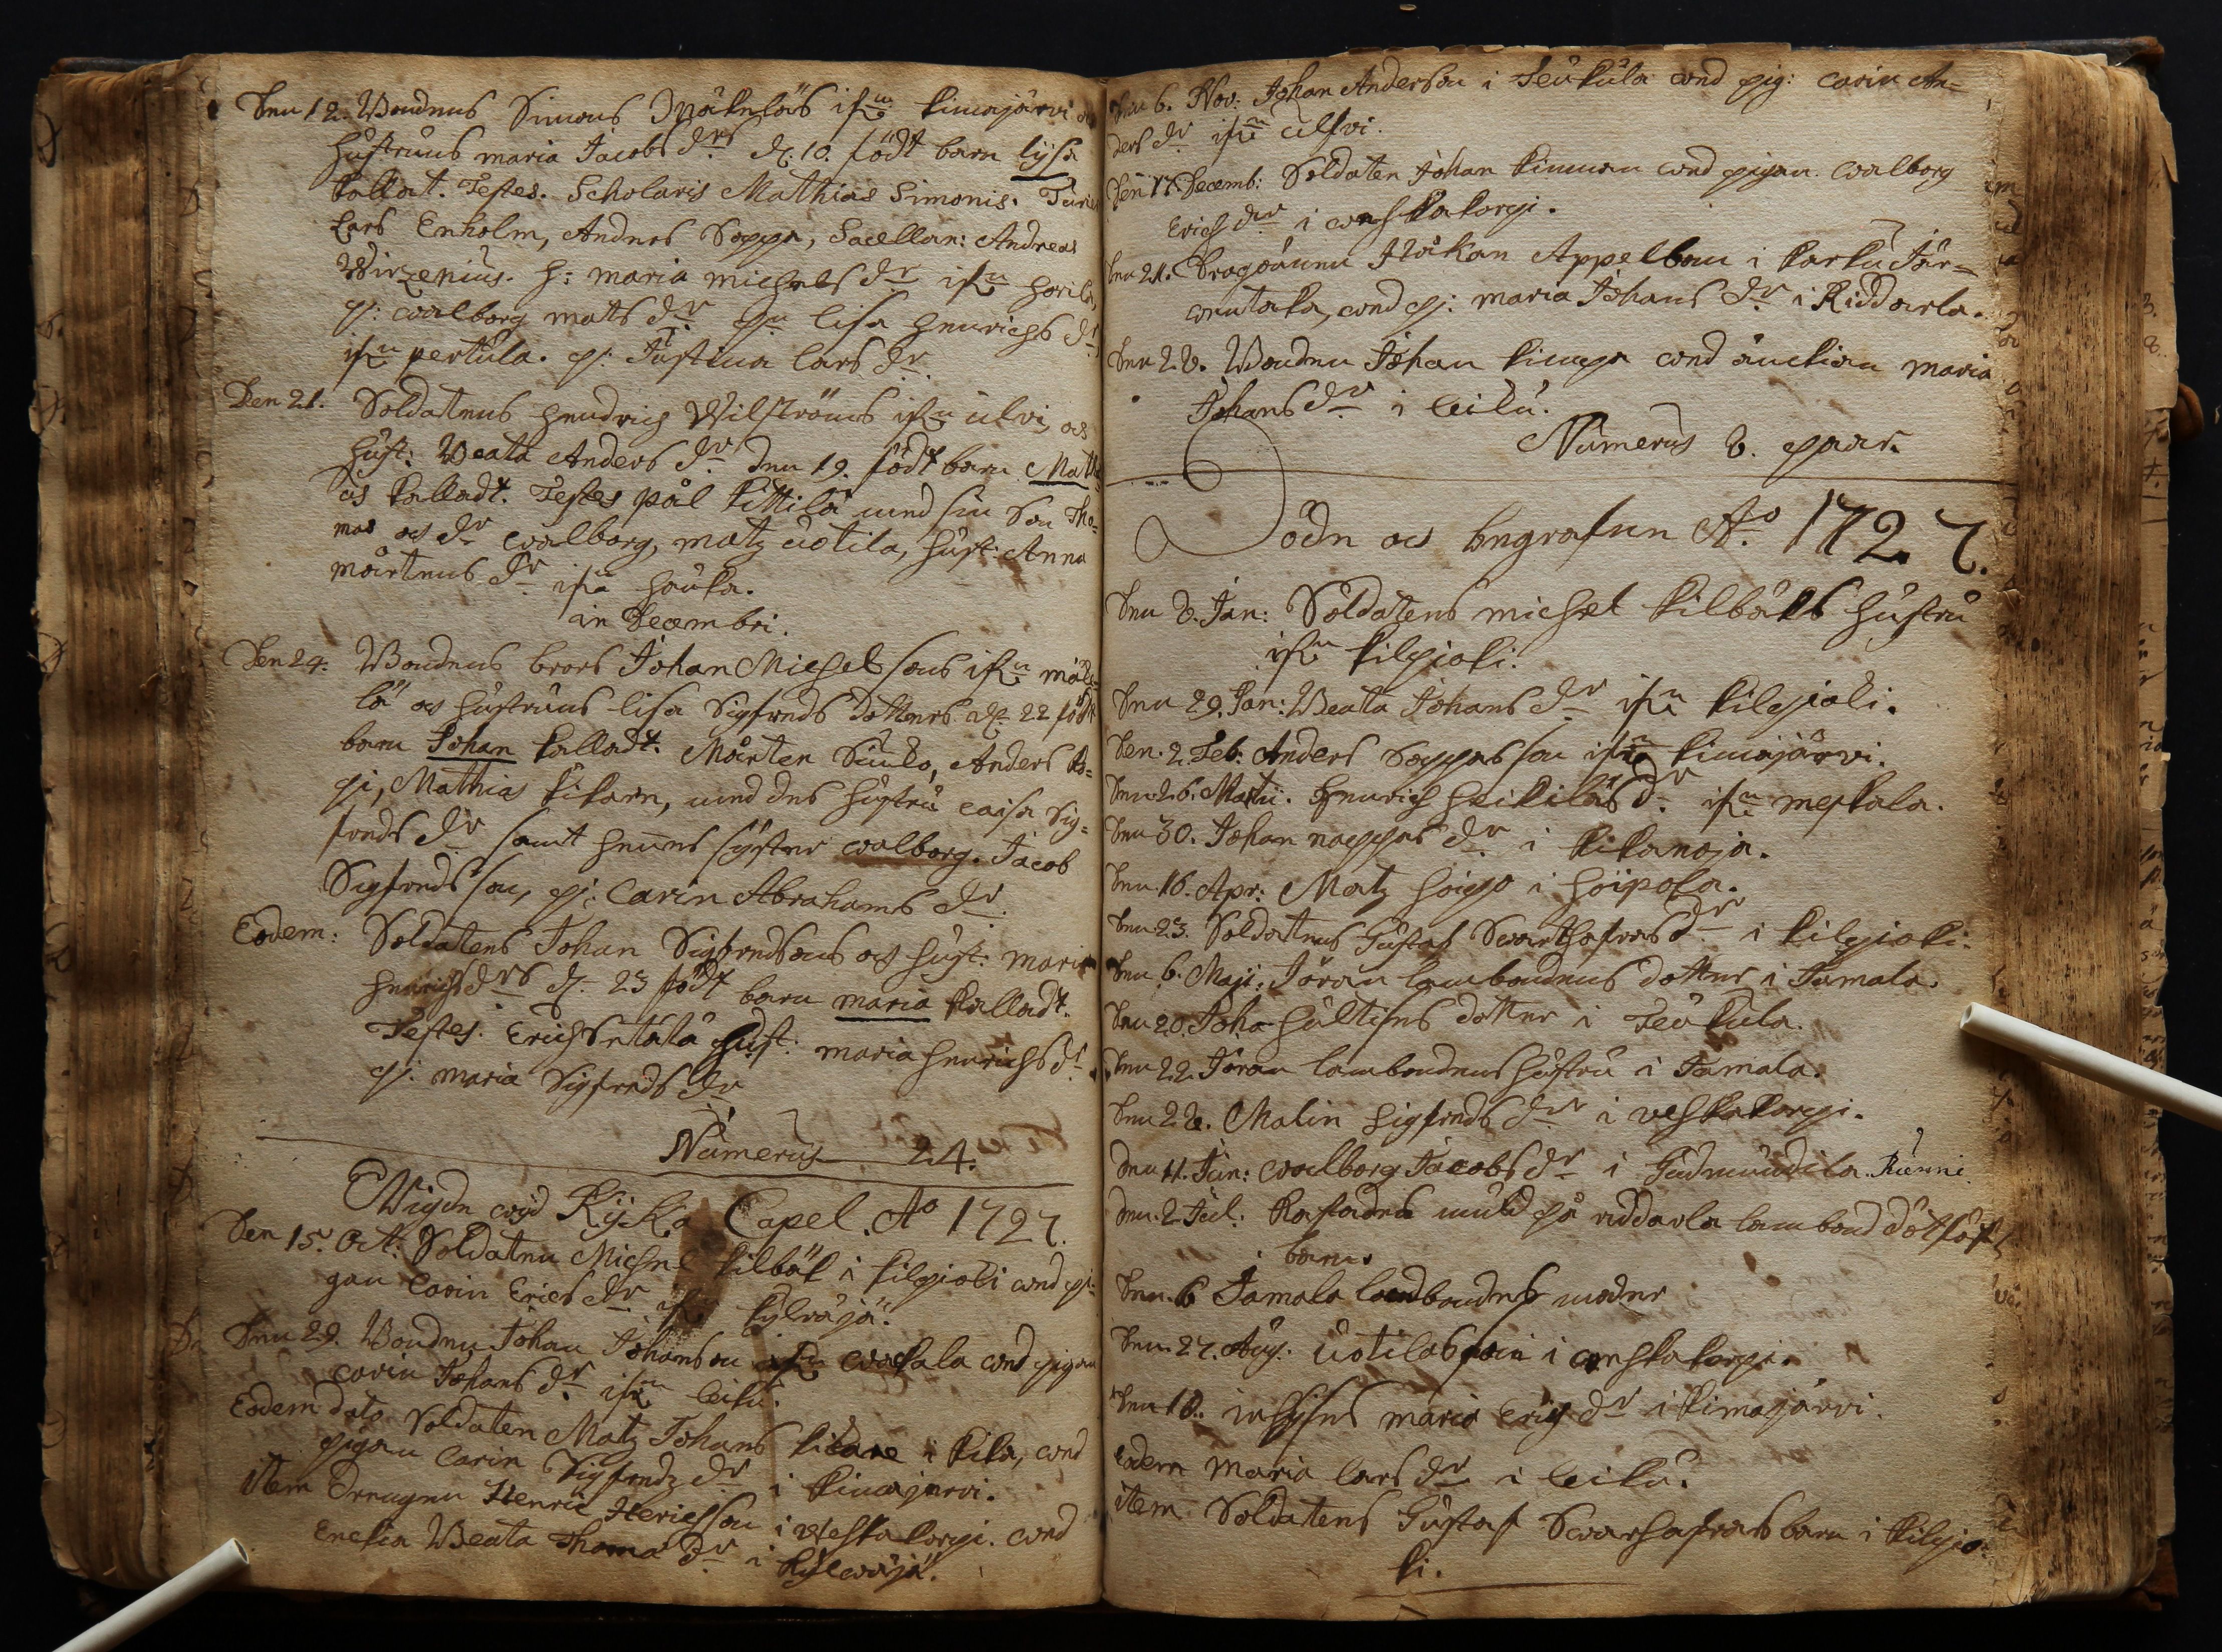 Den 12. Bondens Simons Mäkeläs ifrn kimajärvi
hustrus maria Jacobs drs d. 10. född barn lysa
kallat. Testes. Scholaris Mathias Simonis.
Lars Enholm, Anders Soppa, Sacellan: Andreas
Wirzenius. h: maria michels dr ifrn
p: walborg mats dr lisa Henrichs dr
ifrn pertula. p: Justina lars dr.
Den 21. Soldatens Hendrich Wilströms ifrn ulvi, och
hust: Beata Anders dr den 19. född barn Mathi
as kalladt. Testes pål kittilä med sin Son Tho=
mas och dr walborg, matz uotila, hust: Anna
mårtens dr ifrn hauka.
in Decembri.
Den 24. Bondens brors Johan Michels sons ifrn mäke
lä och hustrus lisa Sigfreds dotters d. 22 född
barn Johan kalladt. Mårten Simko, Anders
pi, Mathias kikare, med des hustru caisa Sig=
freds dr samt hennes syster walborg. Jacob
Sigfreds son, p: Carin Abrahams dr.
Eodem: Soldatens Johan Sigfredsons och hust: maria
Henrichs drs d. 23 född barn maria kalladt.
Testes. Erich hust: maria Henrichs dr
p: maria Sigfreds dr
Numerus 24.
Wigde wijd Kyka Capel. Ao 1727.
Den 15. Oct: Soldaten Michel kilbäk i kilpioki wed pi=
gan Carin Erics dr ifrn kylwäjä.
Den 29. Bonden Johan Johanson ifrn wahala wed pigan
carin Johans dr ifrn leiku.
Eodem dato Soldaten Matz Johans kikare i kika, wed
pigan Carin Sigfredz dr i kimajervi.
item Drengen Henric Hericsson i Wehkakorpi. wed
Enckia Beata Thomæ dr i kylwäjä.
Den 6. Nov: Johan Anderson i Teukula wed pig: carin An=
ders dr ifrn ulfvi.
Den 17. Decemb: Soldaten Johan kimman wed pigan walborg
Erichs dr i wehkakorpi.
Den 21. Dragounen Håkan Appelbom i karku Jär=
wentaka, wed p: maria Johans dr i Riddarla.
Den 28. Bonden Johan kimpa wed änckian maria
Johans dr i leiku.
Numerus 8. paar.
Döde och begrafne Ao 1727.
Den 8. Jan: Soldatens michel kilbäks hustru
ifrn kilpioki.
Den 29. Jan: Beata Johans dr ifrn kilpioki.
Den 2. Feb: Anders Soppas son ifrn kimajärvi.
Den 26. Martii. Henrich heikiläs dr ifrn meskala.
Den 30. Johan noppas dr i kikanoja.
Den 16. Apr: Matz hoipo i hoipola.
Den 23. Soldatens Gustaf Swarthafras dr i kilpioki.
Den 6. Maji: Jöran lambondens dotter i Tamala.
Den 20. Joha hultins dotter i Teukula.
Den 22. Jöran lambondens hustru i Tamala.
Den 28. Malin Sigfreds dr i wehkakorpi.
Den 11. Jun: walborg Jacobs dr i Gudmundila. Runni.
Den 2. Jul: kastades muld på riddarla lambond dötfött
barn
Den 6 Tamala landbondens moder
Den 27. Aug. Uotilas poiu i wehkakorpi.
Den 18. inhyses maria Erich dr i kimajärvi.
eodem Maria lars dr i leiku.
item Soldatens Gustaf Swarhafras barn i kilpio=
ki.